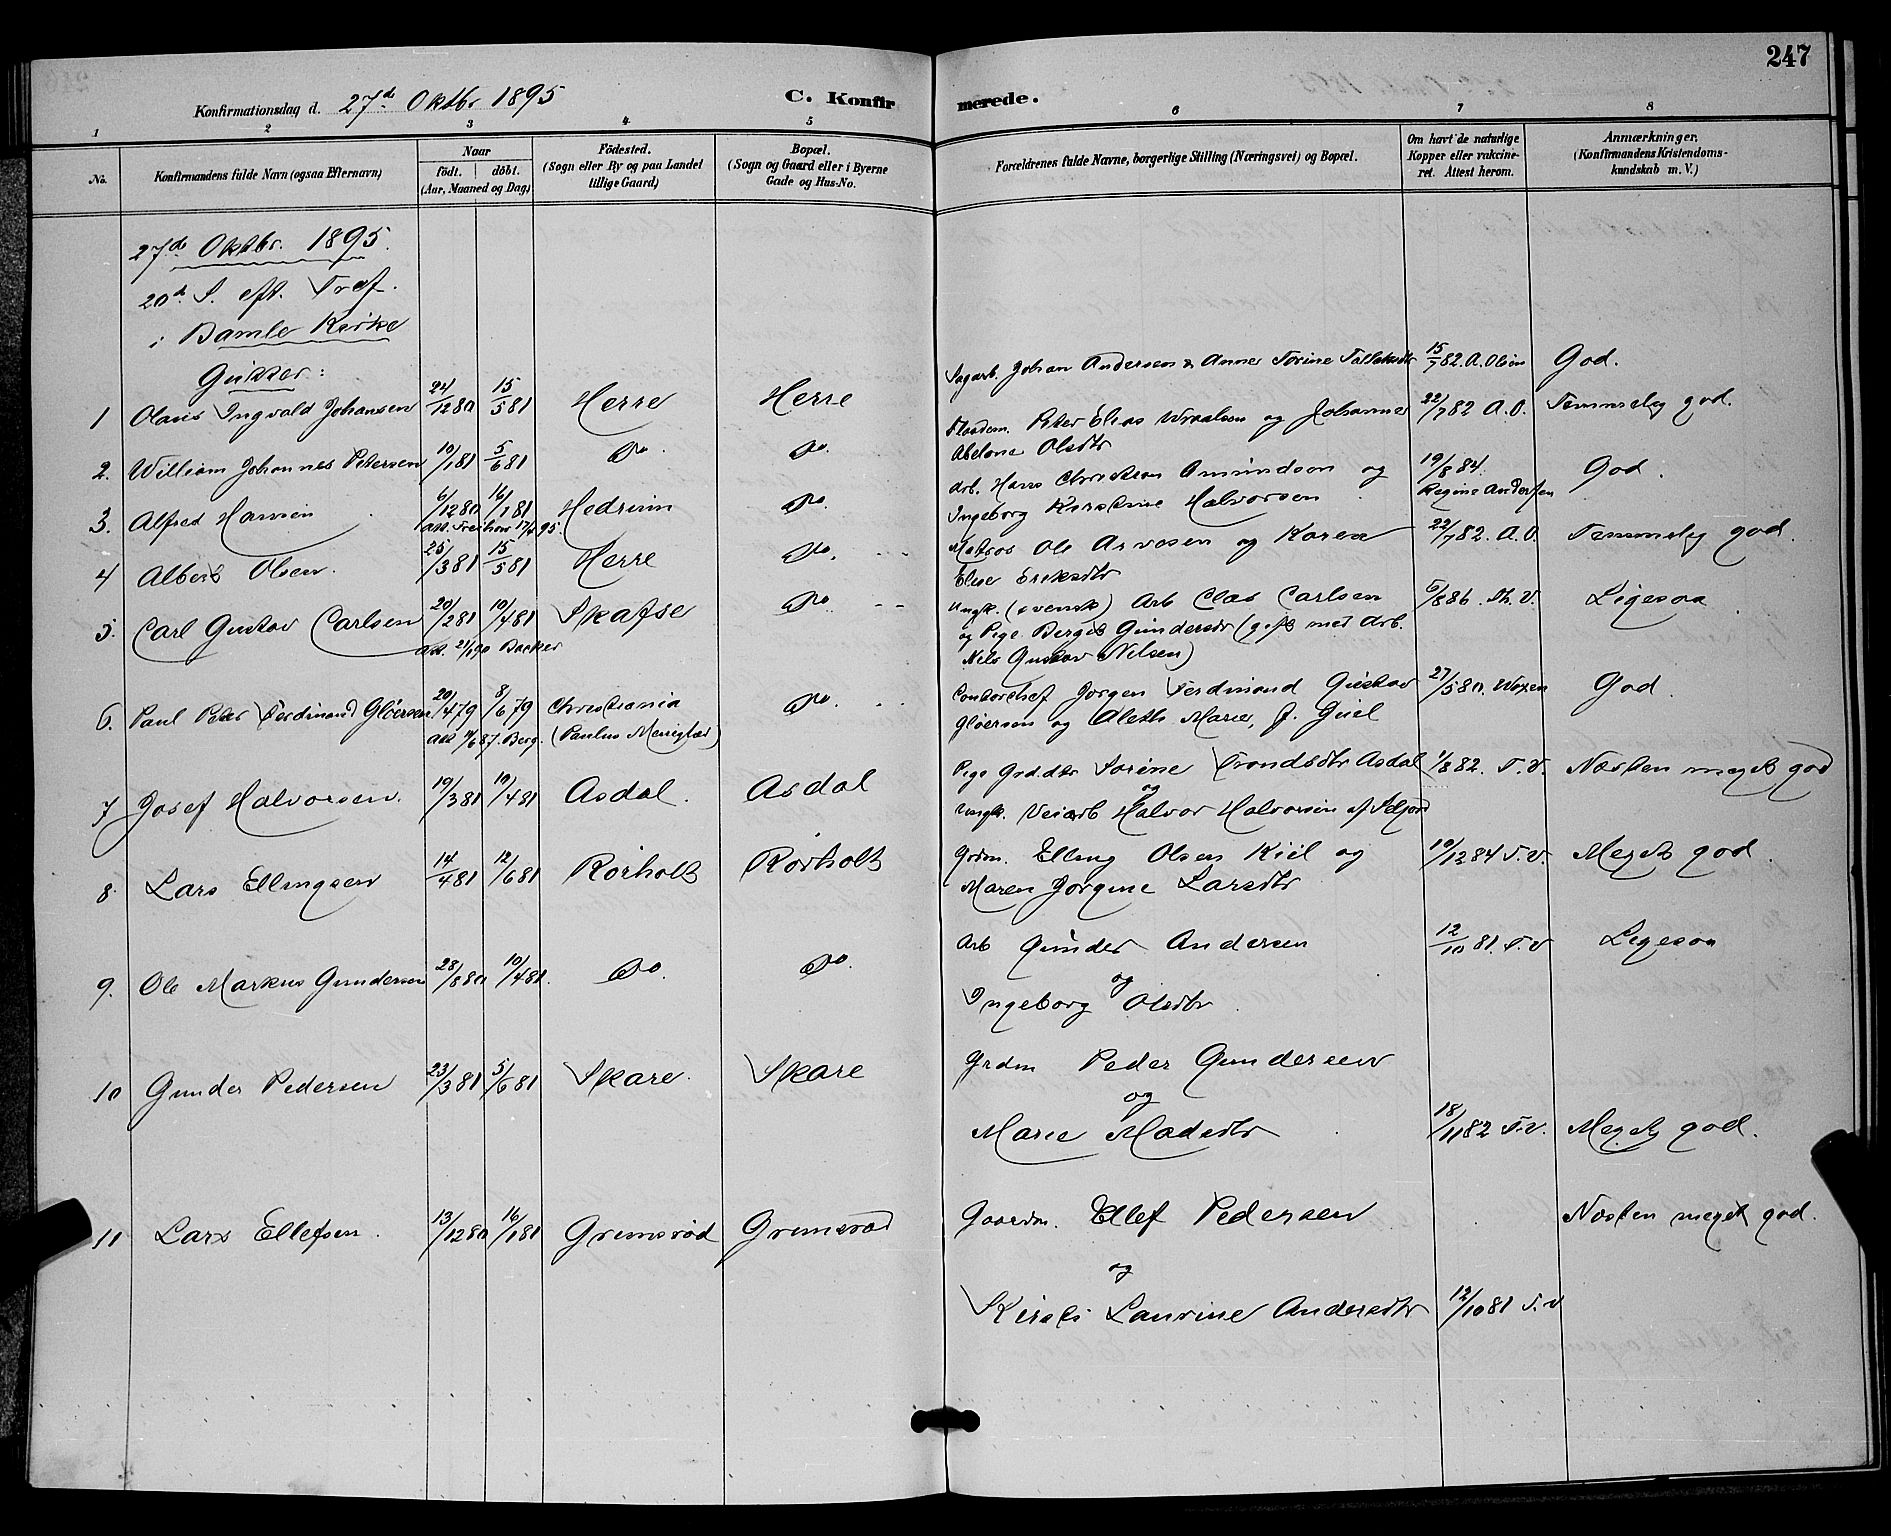 247
Konfirmationsdag d. 27d Oktbr 1895 C. Konfirmerede.
1 2 3 4 5 6 7 8
No. Konfirmandens fulde Navn (ogsaa Efternavn) Naar født. døbt. (Aar, Maaned og Dag) Fødested. (Sogn eller By og paa Landet tillige Gaard) Bopæl. (Sogn og Gaard eller i Byerne Gade og Hus-No. Forældrenes fulde Navne, borgerlige Stilling (Næringsvei) og Bopæl. Om havt de naturlige Kopper eller vaccineret. Attest herom. Anmærkninger. (Konfirmandens Kristendomskundskab m. V.)
27d Oktbr. 1895.
20d S. eft. Tref.
i Bamle Kirke
Gutter:
1 Olaus Ingvald Johansen 24/12 80 15/5 81 Herre Herre Sagarb. Johan Andersen & Anne Torine Tallaksdtr 15/7 82. A. Olsen God.
2. William Johannes Petersen 10/1 81 5/6 81 Do. Do. Peter Elias og Johanne 22/7 82 A.O. Temmelig god.
Abelone Olsdtr
3. Alfred Hansen 6/12 80 16/1 81 Hedrum Do. Arb. Hans Christian Amundsen og 19/8 84. God.
Ingeborg Kirstine Halvorsen Regine Andersen
4 Albert Olsen. 25/3 81 15/5 81 Herre Do. Matros Ole Arvesen og Karen 22/7 82. A.O. Temmelig god.
Elise Eriksdtr
5. Carl Gustav Carlsen 20/2 81 10/4 81 Skafse Do. Ungk. (svensk) Arb Clas Carlsen 5/8 86. Th. V. Ligesaa
Att. 21/1 90 Backer og Pige Berget Gundersdtr (gift med Arb.
Nils Gustav Nilsen)
6. Paul Peter Ferdinand Gløersen 20/4 79 8/6 79 Christiania Do. Contorchef Jørgen Ferdinand Gustav 27/5 80. God.
Berg. (Paulus Menighed) Gløersen og Aleth Marie, f. Juel
7 Josef Halvorsen. 19/3 81 10/4 81 Asdal. Asdal Pige Grd.dtr Sorine Trondsdtr Asdal 1/8 82. T.V. Næsten meget god
og
Ungk. Veiarb Halvor Halvorsen
8 Lars Ellingsen 14/4 81 12/6 81 Rørholt Rørholt Grdm. Elling Olsen Kiil og 10/12 84 T.V. Meget god.
Maren Jørgine Larsdtr
9. Ole Markus Gundersen 28/8 80 10/4 81. Do. Do. Arb Gunder Andersen 12/10 81. T.V Ligesaa
og
Ingeborg Olsdtr.
10 Gunder Pedersen 23/3 81 5/6 81 Skare. Skare Grdm Peder Gundersen
og
Marie Madsdtr 18/11 82 T.V. Meget god.
11 Lars Ellefsen. 13/12 80 16/1 81 Grimsrød Grimsrød Gaardm. Ellef Pedersen Næsten meget god.
og
Kirsti Laurine Andersdtr 12/10 81 T.V